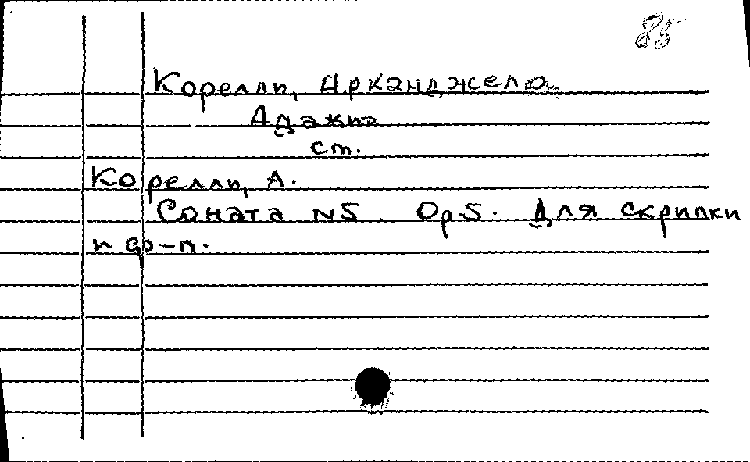 85
Корелли, Арканджело.
Адажио
см.
Корелли, А.
Соната N5. Op.5. Для скрипки
и ф-п.